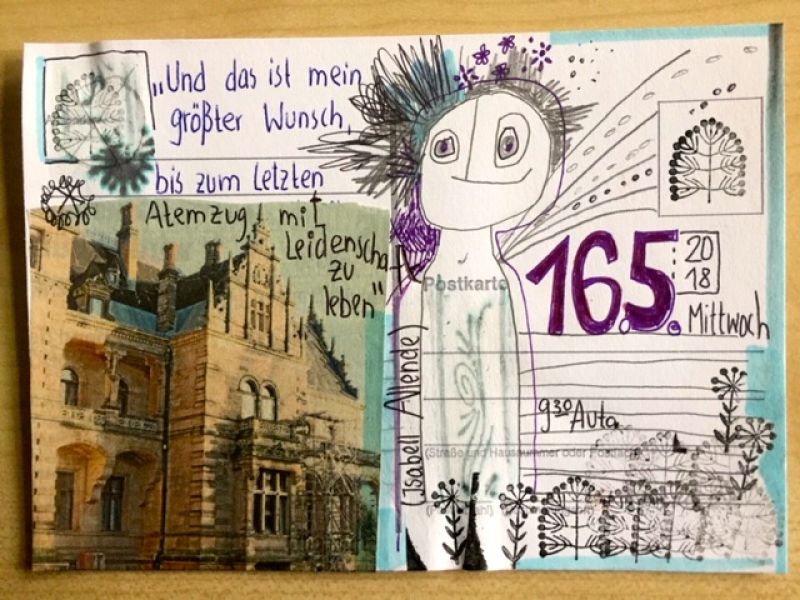 „Und das ist mein
größter Wunsch,
bis zum letzten
Atemzug mit
Leidenschaft
zu
leben"
(Isabell Allende)
Postkarte
16.5.
20
18
Mittwoch
9³⁰ Auto
(Straße und Hausnummer oder Postfach)